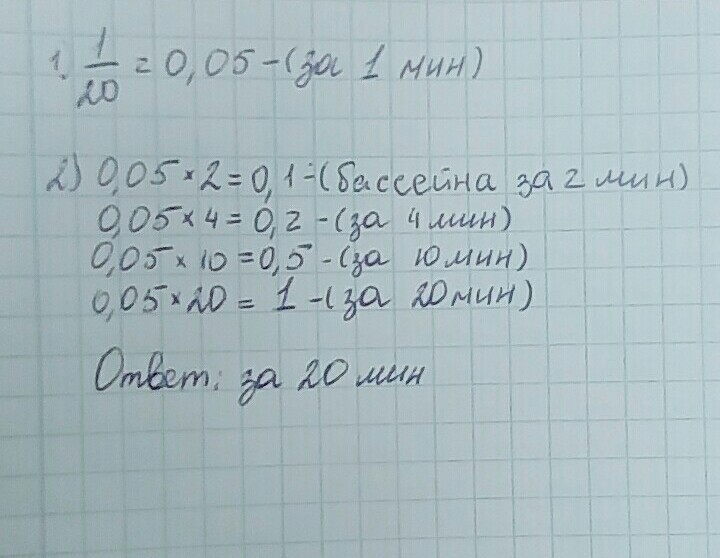 1. 1/20 = 0,05 - (за 1 мин)
2) 0,05 × 2 = 0,1 - (бассейна за 2 мин)
0,05 × 4 = 0,2 - (за 4 мин)
0,05 × 10 = 0,5 - (за 10 мин)
0,05 × 20 = 1 - (за 20 мин)
Ответ: за 20 мин